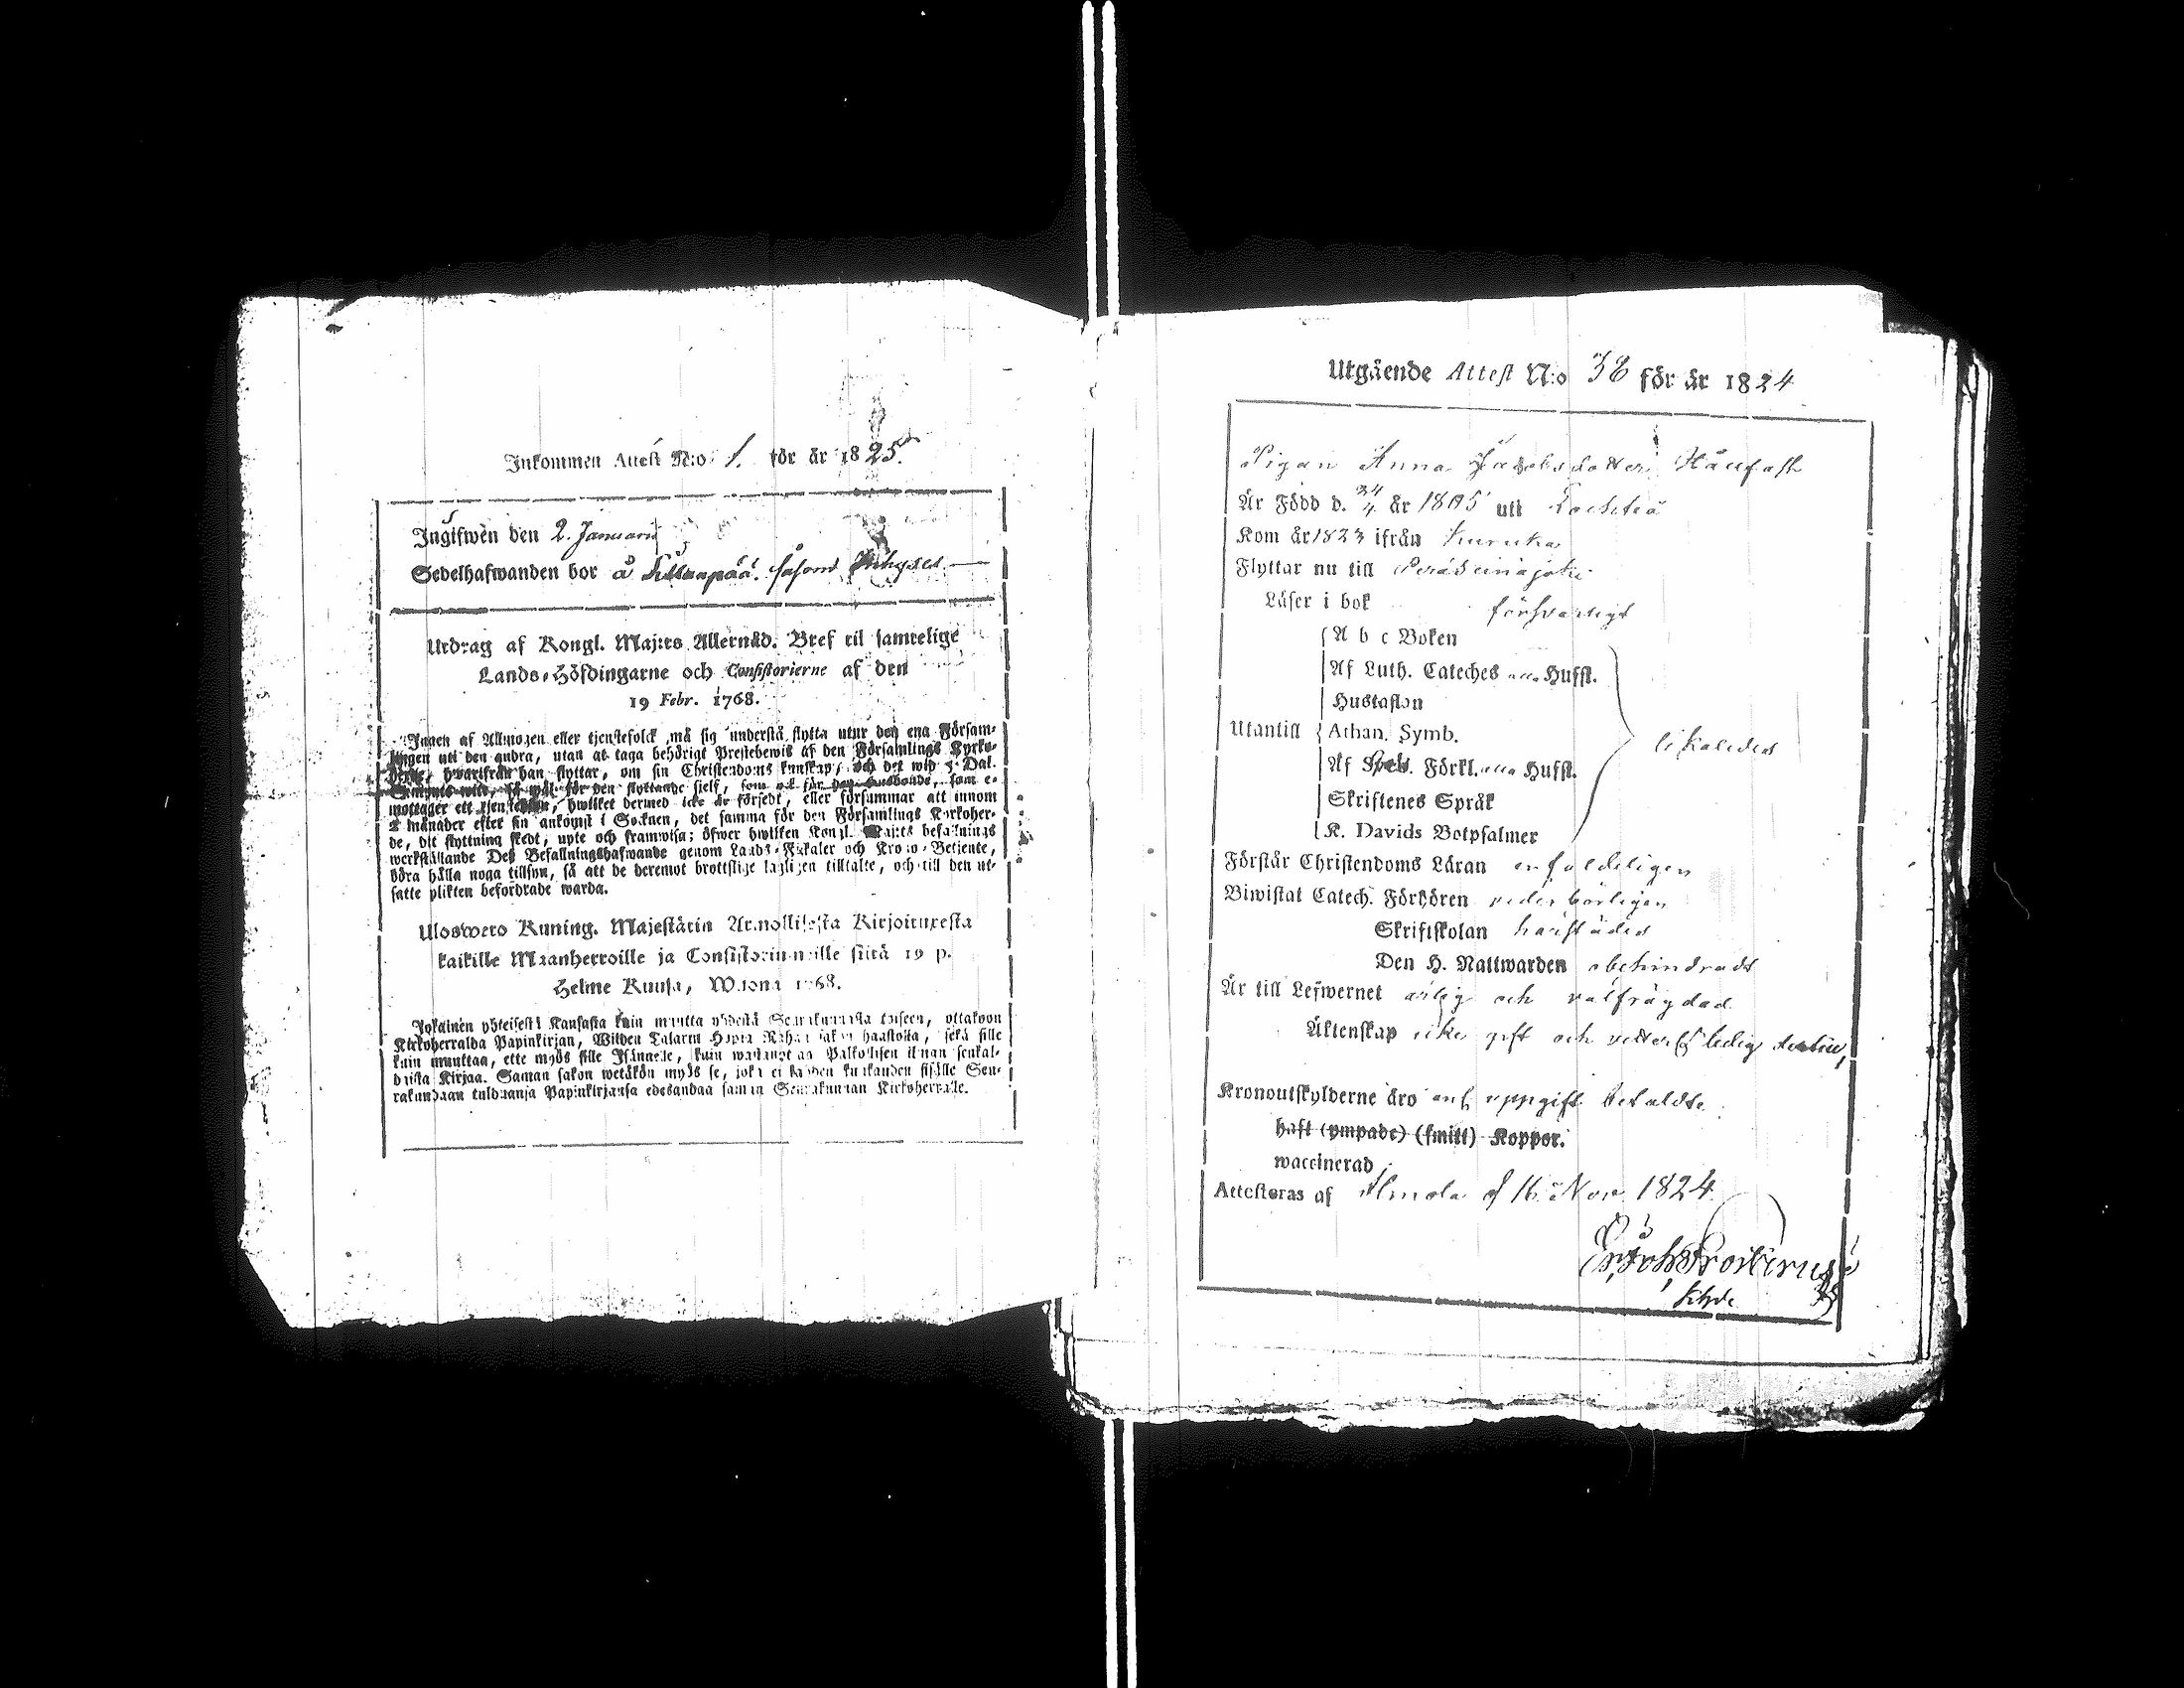 Inkommen Attest N:o 1. för år 1825.
Ingifwen den 2. Januarii
Sedelhafwanden bor å såsom
Utdrag af Kongl. Maj:ts Allernåd. Bref til samtelige
Lands-Höfdingarne och Consistorierne af den
19 Febr. 1768.
Ingen af Allmogen eller tjenstefolck må sig understå flytta utur den ena Försam-
lingen uti den andra, utan at taga behörigt Prestebewis af den Församlings Kyrko-
herde, hwarifrån han flyttar, om sin Christendoms kunskap, och det wid 5 Dal.
Silfwermts wite, så wäl för den flyttande sielf, som ock för den husbonde, som e-
mottager ett tjenstehjon, hwilket dermed icke är försedt, eller försummar att innom
2 månader efter sin ankomst i Socknen, det samma för den Församlings Kyrkoher-
de, dit flyttning skedt, upte och framwisa; öfwer hwilken Kongl. Maj:ts befallnings
werkställande Des Befallningshafwande genom Lands-Fiskaler och Krono-Betjente,
böra hålla noga tillsyn, så att de deremot brottslige lagligen tilltalte, och till den ut-
satte plikten befordrade warda.
Uloswero Kuning. Majestätin Armollisesta Kirjoituxesta
kaikille Maanherroille ja Consistoriumeille siitä 19 p.
Helme Kuusa, Wuona 1768.
Yxikäinen yhteisestä Kansasta kuin muutta yhdestä Seurakunnasta toiseen, ottakoon
Kirkoherralda Papinkirjan, Wiiden Talarin Hopia Rahan sakon haastolla, sekä sille
kuin muuttaa, ette myös sille Isännälle, kuin wastanottaa Palkollisen ilman senkal-
daista Kirjaa. Saman sakon wetäkön myös se, joka ei kahden kuukauden sisälle Seu-
rakundaan tulduansa Papinkirjaansa edesandaa saman Seurakunnan Kirkoherralle.
Utgående Attest N:o 38 för år 1824
Pigan Anna Jacobsdotter Hånfast
Är Född d. 24/4 år 1805 uti Lochteå
Kom år 1823 ifrån Kuruka
Flyttar nu till Peräseinäjoki
Läser i bok försvarligt
A b c Boken
Af Luth. Cateches Hufst.
Hustaflan
Utantill Athan. Symb. likaledes
Af Förkl. Hufst.
Skriftenes Språk
K. Davids Botpsalmer
Förstår Christendoms Läran enfaldeligen
Biwistat Catech. Förhören vederbörligen
Skriftskolan härstädes
Den H. Nattwarden obehindradt
Är till Lefwernet ärlig och välfrägdad
Äktenskap icke gift och ledig
Kronoutskylderne äro enl. uppgift betaldte
haft (ympade) (smitt) Koppor.
waccinerad
Attesteras af Ilmola d 16 Nov. 1824